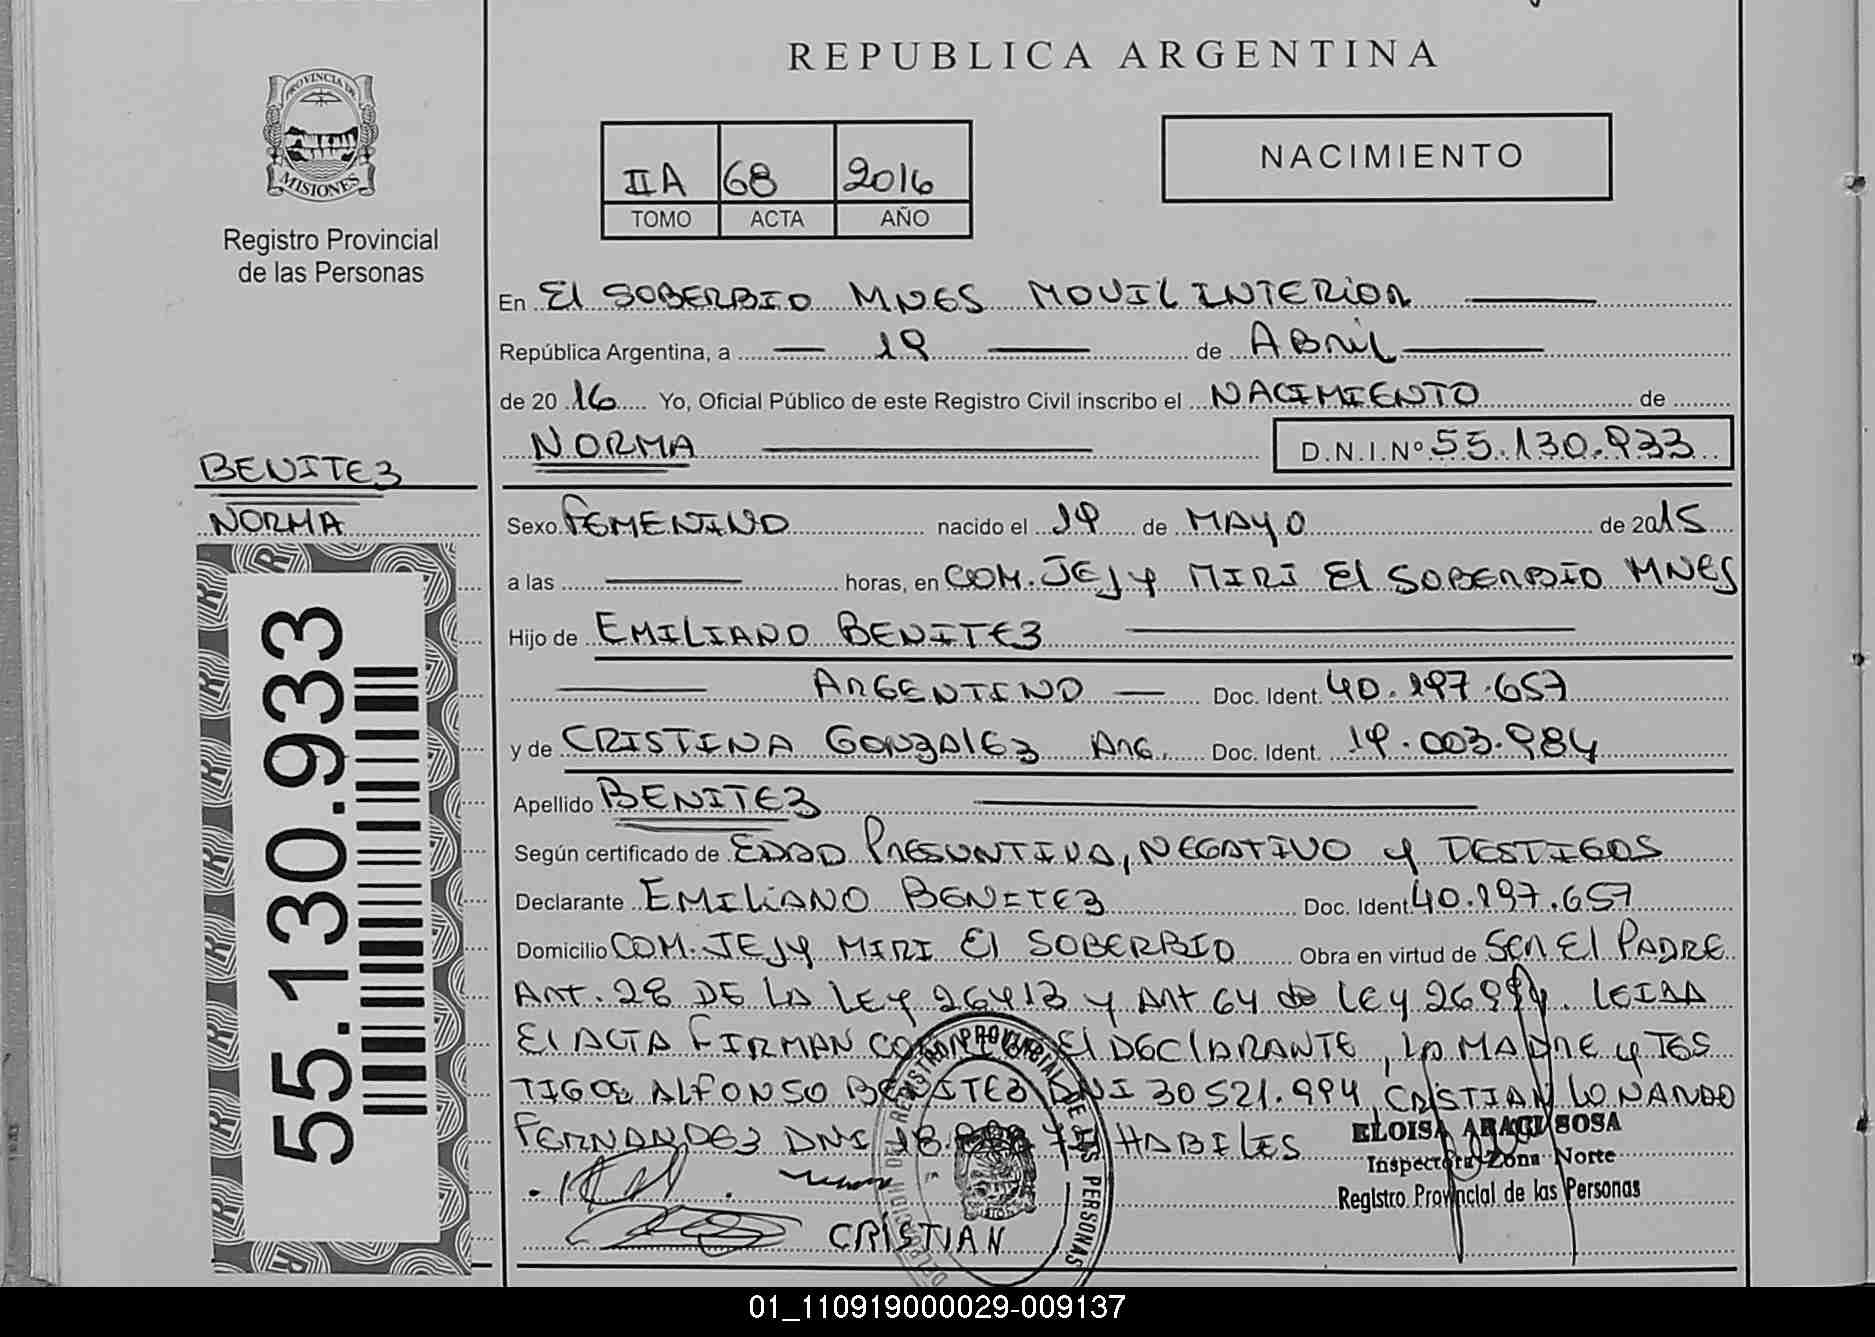 REPUBLICA ARGENTINA
PROVINCIA DE
MISIONES
Registro Provincial
de las Personas
IIA 68 2016
TOMO ACTA AÑO
NACIMIENTO
En El SOBERBIO MNES MOVIL INTERIOR
República Argentina, a 19 de ABRIL
de 2016 Yo, Oficial Público de este Registro Civil inscribo el NACIMIENTO de
NORMA D.N.I.Nº 55.130.933
BENITEZ
NORMA
55.130.933
Sexo FEMENINO nacido el 19 de MAYO de 2015
a las horas, en COM. JEJY MIRI El SOBERBIO MNES
Hijo de EMILIANO BENITEZ
ARGENTINO Doc. Ident. 40.197.657
y de CRISTINA GONZALEZ ARG. Doc. Ident. 19.003.984
Apellido BENITEZ
Según certificado de EDAD PRESUNTIVA, NEGATIVO y TESTIGOS
Declarante EMILIANO BENITEZ Doc. Ident. 40.197.657
Domicilio COM. JEJY MIRI El SOBERBIO Obra en virtud de SER El PADRE
ART. 28 DE LA LEY 26413 y ART 64 de LEY 26994. LEIDA
El ACTA FIRMAN El DECLARANTE, LA MADRE y TES
TIGOS ALFONSO BENITEZ DNI 30521.994, CRISTIAN LONANDO
FERNANDEZ DNI HABILES
ELOISA SOSA
Inspectora Zona Norte
Registro Provincial de las Personas
CRISTIAN
01_110919000029-009137